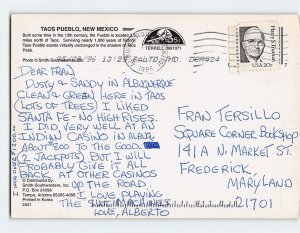 TAOS PUEBLO, NEW MEXICO
Built some time in the 13th century, the Pueblo is located
miles north of Taos. Surviving nearly 1,000 years of history
Taos Pueblo stands virtually unchanged in the shadow of Taos
Peak.
TERRELL
13:25 BALTO MD. DET#24
1996
Harry S. Truman
USA 20c
DEAR FRAN
DUSTY & SANDY IN ALBUQUERQUE
CLEAN & GREEN HERE IN TAOS
(LOTS OF TREES) I LIKED
SANTA FE - NO HIGH RISES.
I DID VERY WELL AT AN
INDIAN CASINO IN ALBUQ.
ABOUT $800 TO THE GOOD.
(2 JACKPOTS) BUT I WILL
PROBABLY GIVE IT ALL
BACK AT OTHER CASINOS
UP THE ROAD.
I LOVE PLAYING
THE SLOT MACHINES
LOVE, ALBERTO
FRAN TERSILLO
SQUARE CORNER BOOKSHOP
141A N. MARKET ST.
FREDERICK
MARYLAND
21701
Distributed by:
Smith-Southwestern, Inc.
Tempe, Arizona 85285
Printed in Korea